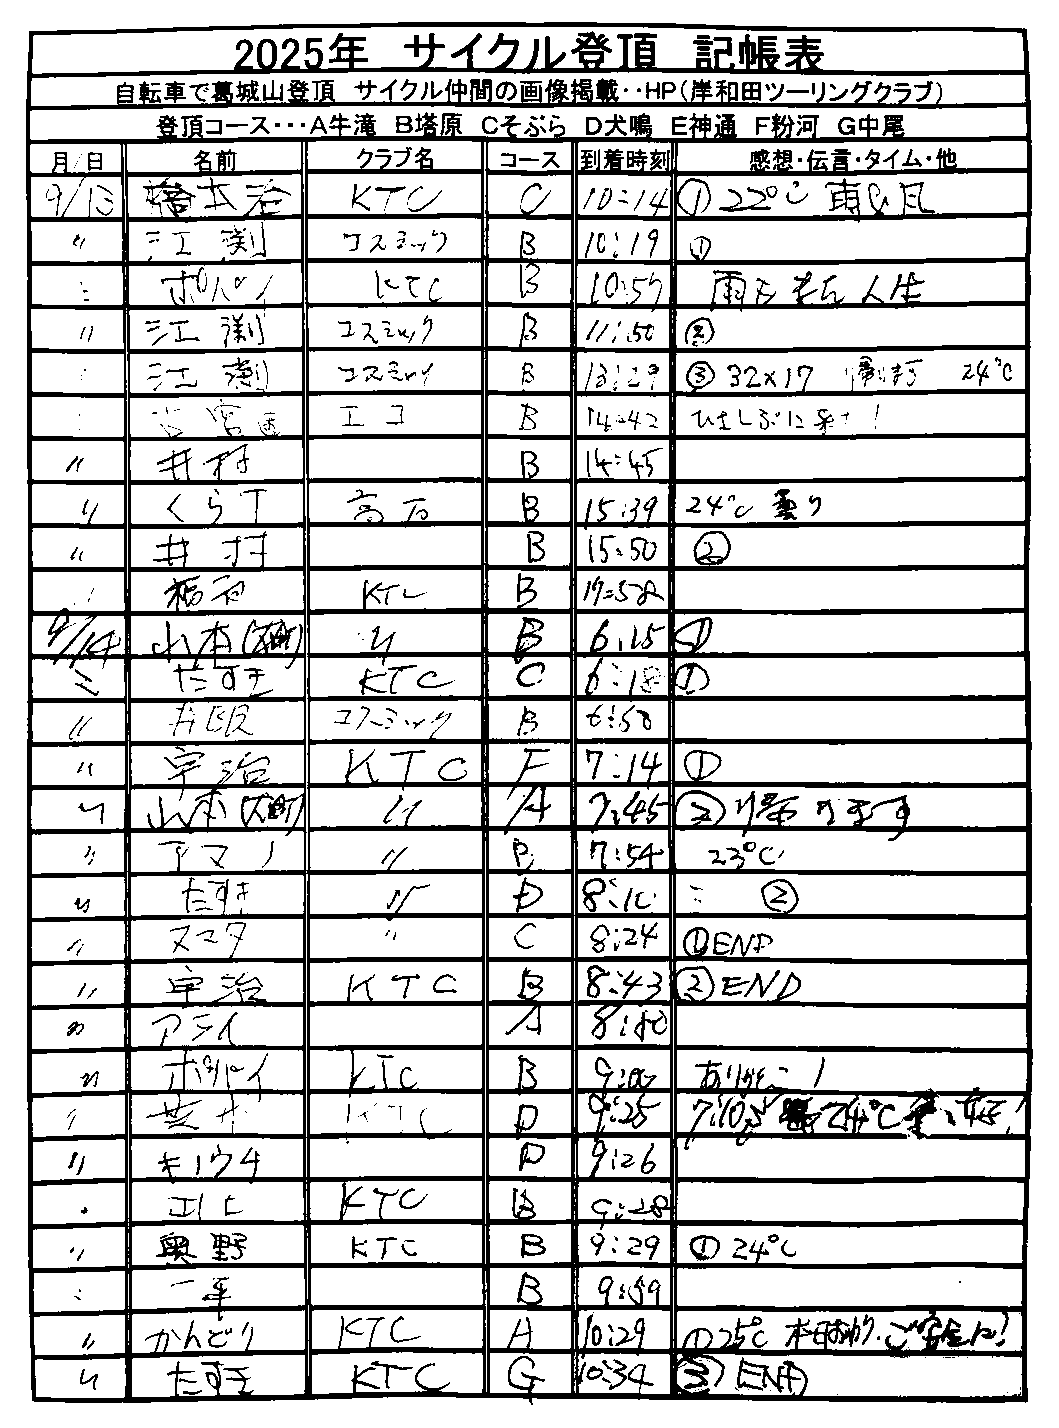 2025年 サイクル登頂 記帳表
自転車で葛城山登頂 サイクル仲間の画像掲載‥HP(岸和田ツーリングクラブ)
登頂コース･･･A牛滝 B塔原 Cそぶら D犬鳴 E神通 F粉河 G中尾
月/日 名前 クラブ名 コース 到着時刻 感想・伝言・タイム・他
9/13 橋本治 KTC C 10:14 ① 22℃ 雨と風
〃 江渕 コスミック B 10:19 ①
〃 ポパイ KTC B 10:57 雨も 人生
〃 江渕 コスミック B 11:50 ②
江渕 コスミック B 13:29 ③ 32×17 24℃
エコ B 14:42 ひさしぶに来た!
〃 井村 B 14:45
〃 くらT 高石 B 15:39 24℃ 曇り
〃 井村 B 15:50 ②
KTC B 17:58
9/14 山本 〃 B 6:15 ①
〃 たすき KTC C 6:18 ①
〃 コスミック B 6:50
〃 宇治 KTC F 7:14 ①
〃 山本 〃 A 7:45 ② 帰ります
〃 アマノ 〃 B 7:54 23℃
〃 たすき 〃 D 8:10 〃 ②
〃 スマタ 〃 C 8:24 ① END
〃 宇治 KTC B 8:43 ② END
〃 アライ A 8:40
〃 ポパイ KTC B 9:00 ありがとー!
〃 KTC D 9:25 7:105 24℃
〃 キノウチ D 9:26
KTC B 9:28
〃 奥野 KTC B 9:29 ① 24℃
〃 一平 B 9:59
〃 かんどり KTC A 10:29 ① 25℃ 本日おわり.ご安全に!
〃 たすき KTC G 10:34 ③ END